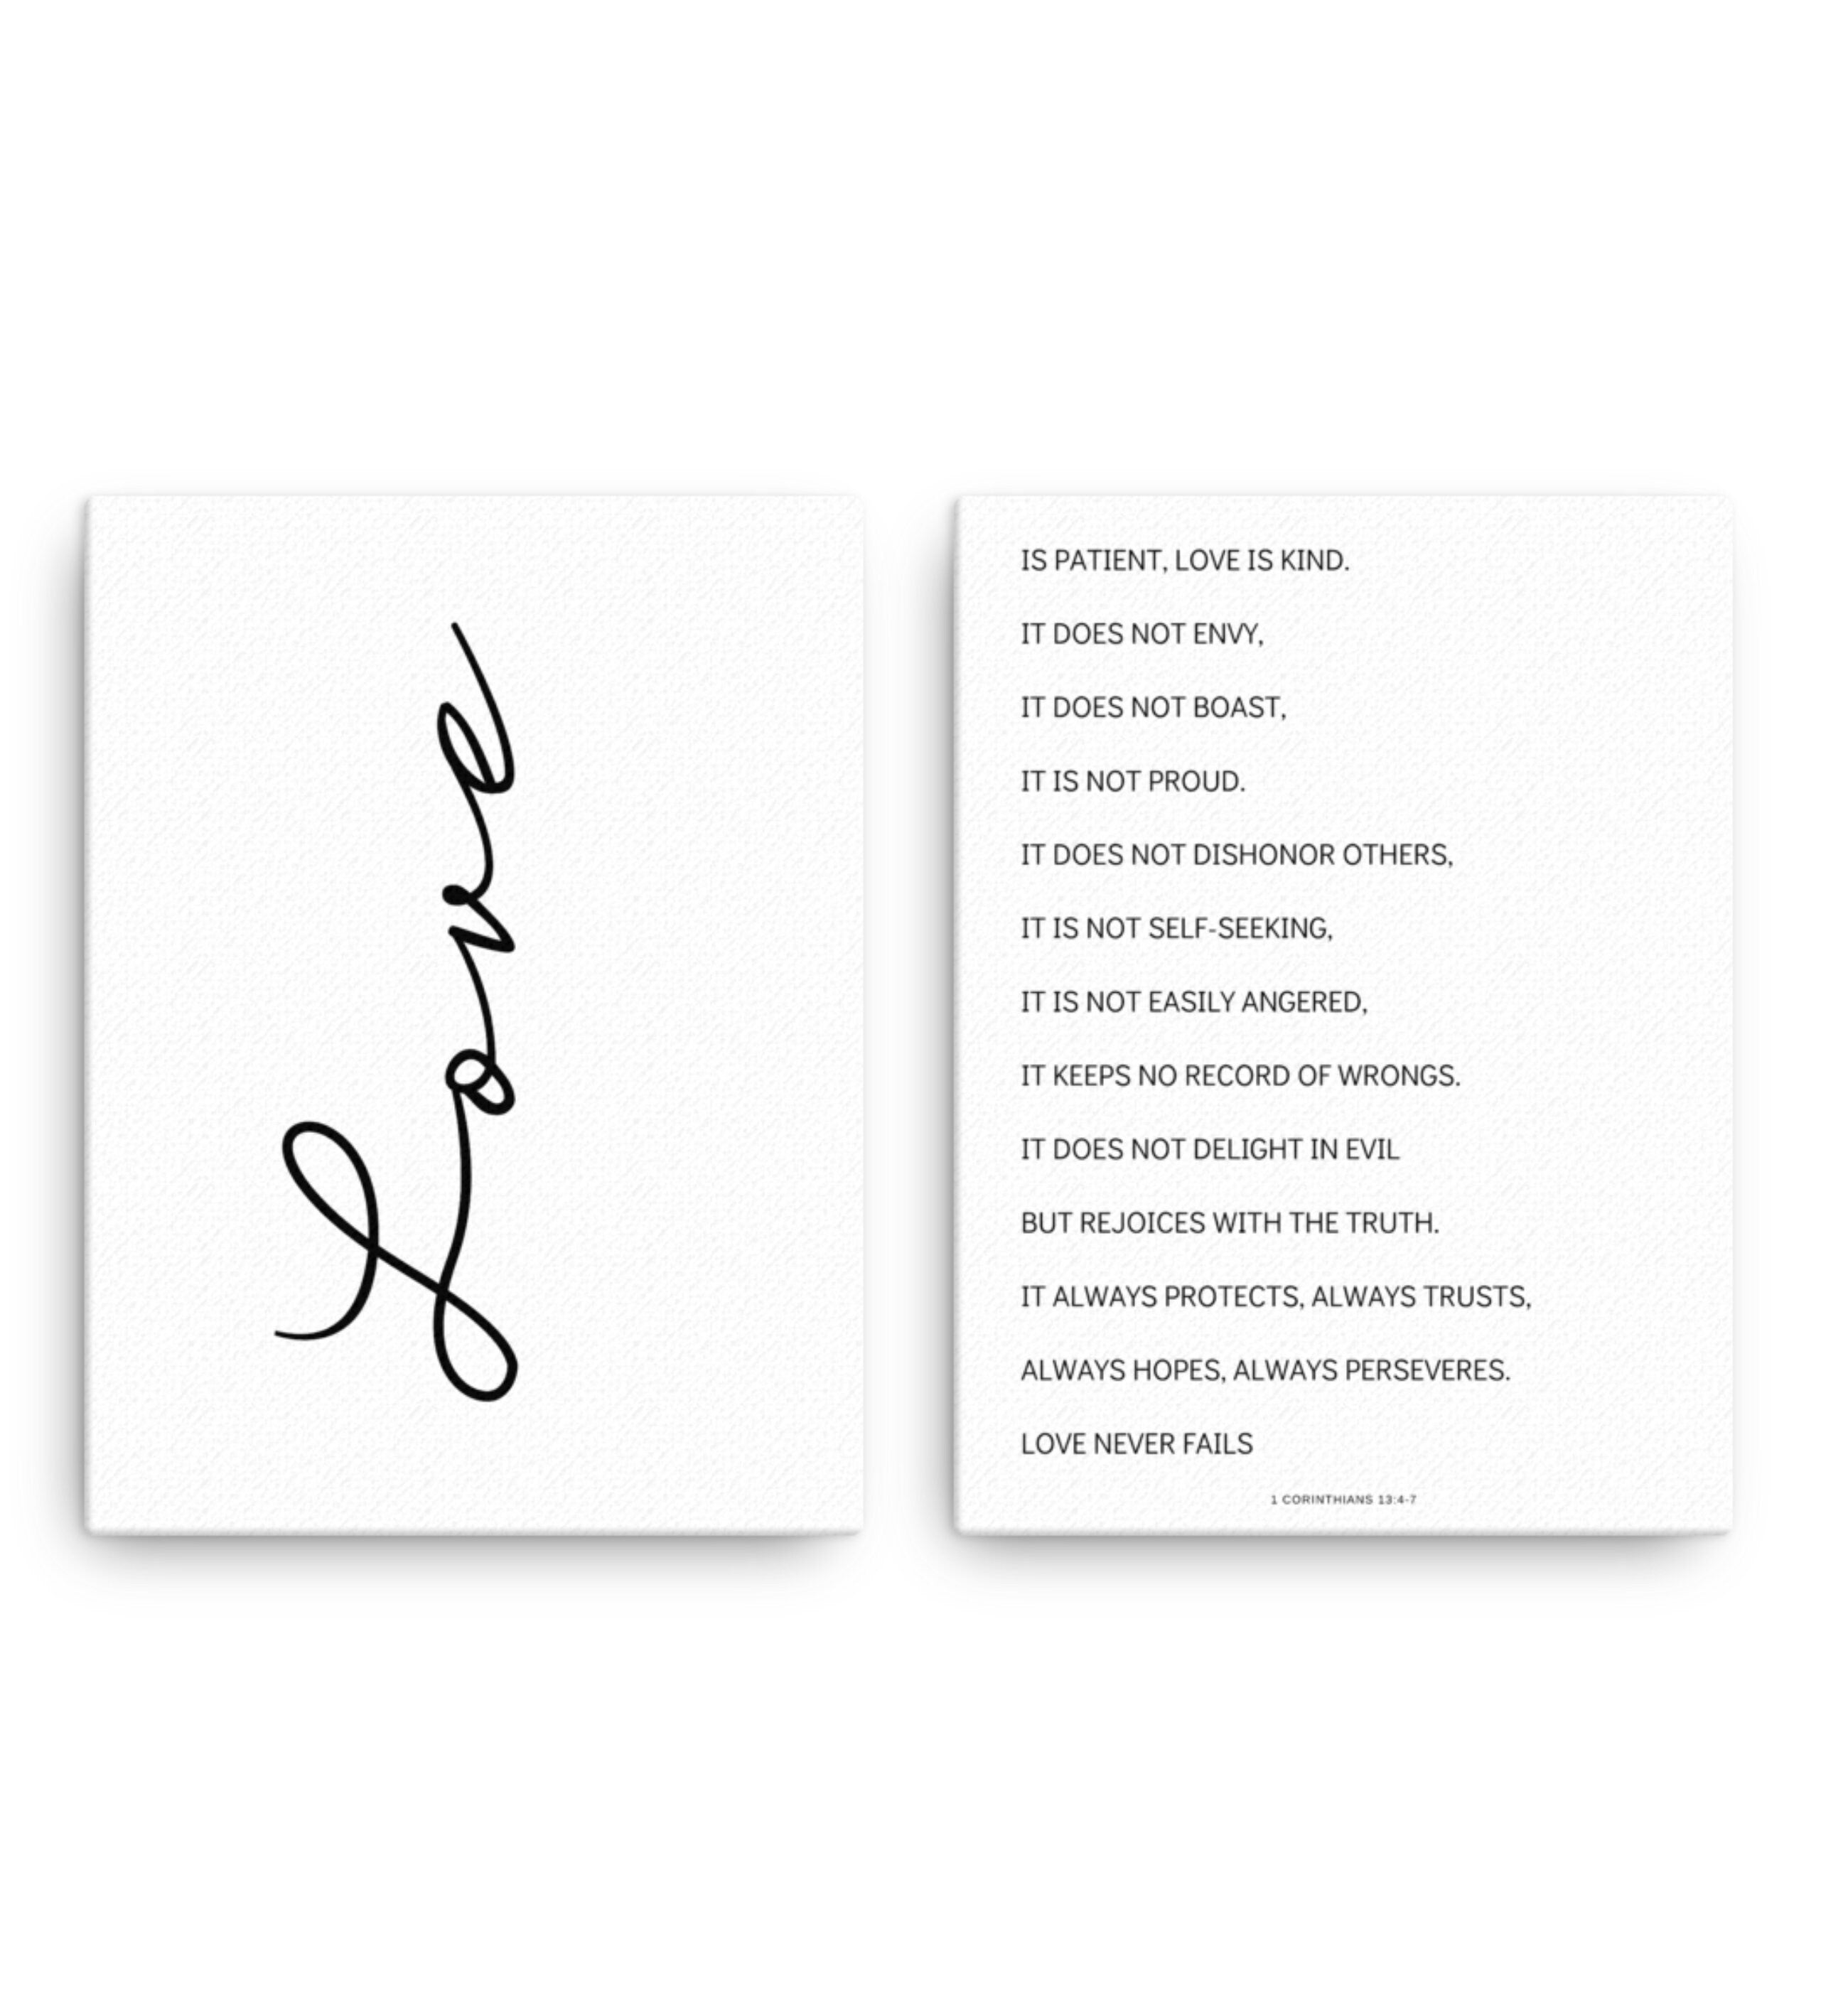 Love
IS PATIENT, LOVE IS KIND.
IT DOES NOT ENVY,
IT DOES NOT BOAST,
IT IS NOT PROUD.
IT DOES NOT DISHONOR OTHERS,
IT IS NOT SELF-SEEKING,
IT IS NOT EASILY ANGERED,
IT KEEPS NO RECORD OF WRONGS.
IT DOES NOT DELIGHT IN EVIL
BUT REJOICES WITH THE TRUTH.
IT ALWAYS PROTECTS, ALWAYS TRUSTS,
ALWAYS HOPES, ALWAYS PERSEVERES.
LOVE NEVER FAILS
1 CORINTHIANS 13:4-7